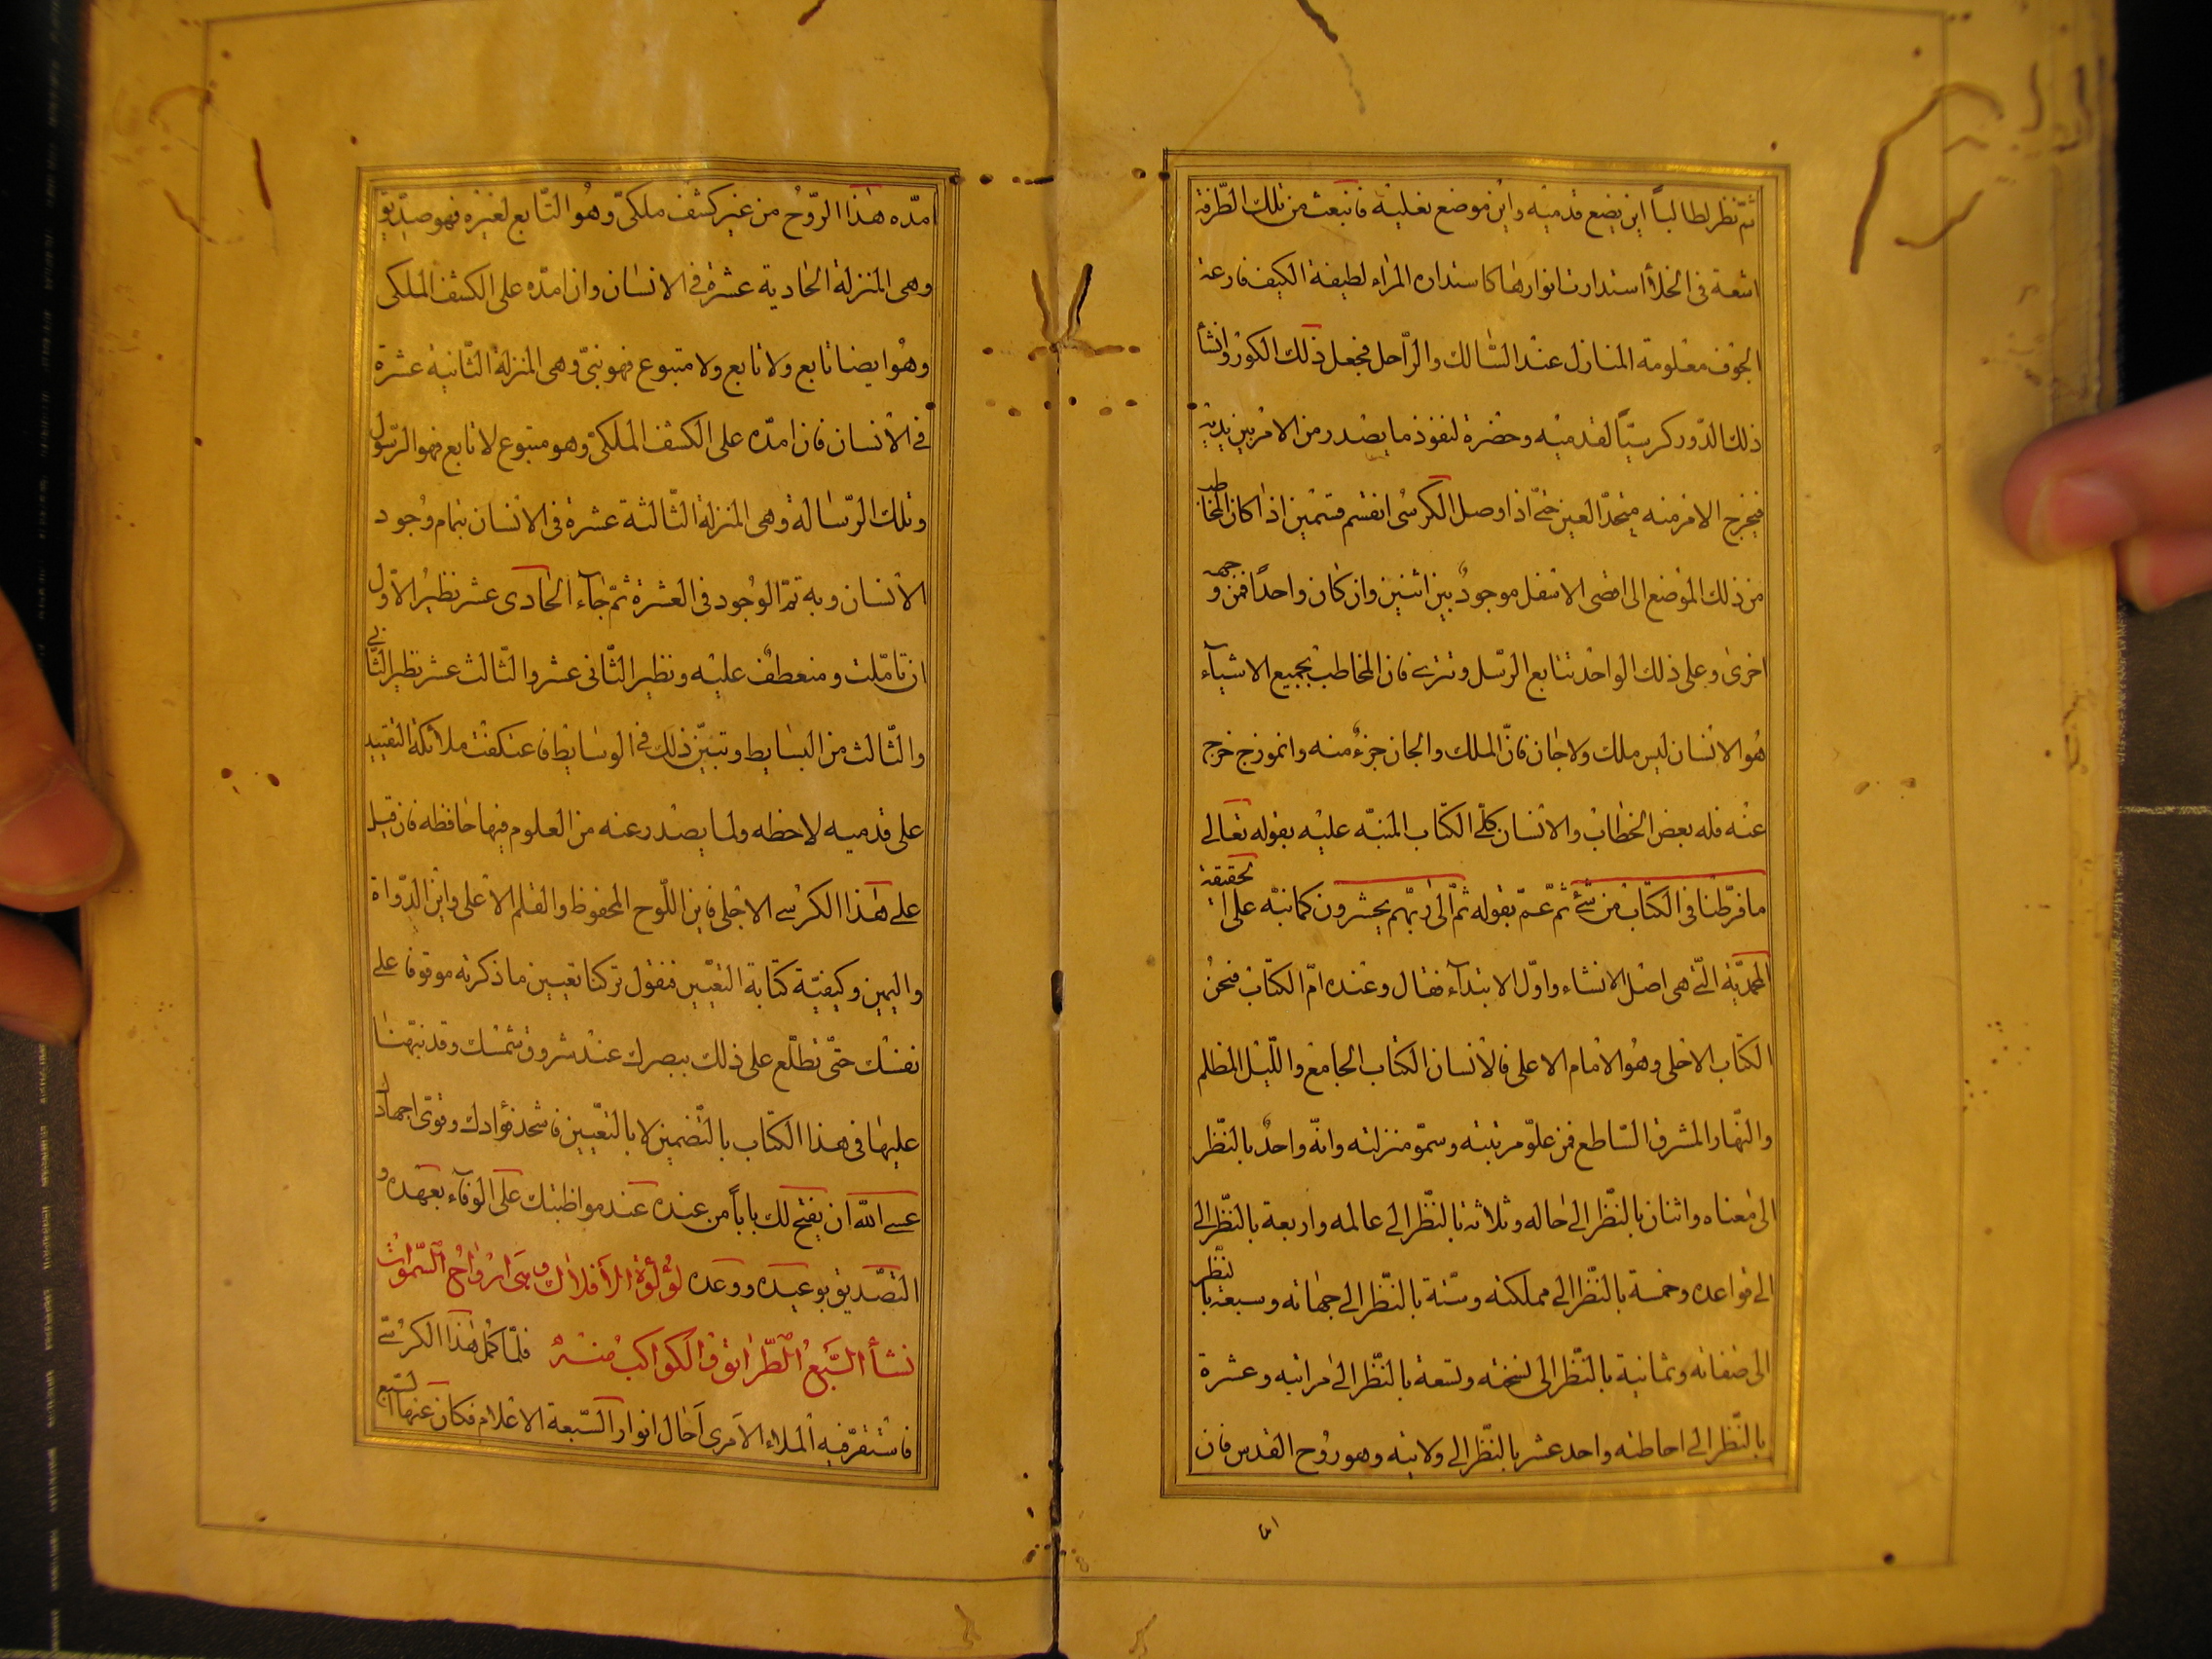 ثمّ نظر لطالباً اين يضع قدميه واين موضع نعليه فانبعث من تلك الطّرفة
اشعة فى الخلأ استدارت انوارها كاستداره المراء لطيفة الكيف فارعة
الجوف معلومة المنازل عند السّالك والرّاحل فجعل ذلك الكور وانشأ
ذلك الدّور كرسيّاً لقدميه وحضرة لنفوذ ما يصدر من الامر بين يديه
فيخرج الامر منه متحدّ العين حتّى اذا وصل الكرسى انقسم قسمين اذا كان المخاطب
من ذلك الموضع الى اقصى الاسفل موجودٌ بين اثنين وان كان واحداً فمن وجهة
اخرى وعلى ذلك الواحد تتابع الرّسل وتترى فان المخاطب بجميع الاشيآء
هو الانسان ليس ملك ولا جان فانّ الملك والجان جزءٌ منه وانموذج خرج
عنه فله بعض الخطاب والانسان كلّى الكتاب المنبّه عليه بقوله تعالى
ما فرّطنا فى الكتاب من شئ ثم عمّ بقوله ثمّ الى ربّهم يحشرون كما نبّه على الحقيقة
المحمديّة الّتى هى اصل الانشاء واوّل الابتدآء فقال وعنده امّ الكتاب فنحنُ
الكتاب الاجلى وهو الامام الاعلى فالانسان الكتاب الجامع واللّيل المظلم
والنّهار المشرق السّاطع فمن علوّ مرتبته وسموّ منزلته وانّه واحدٌ بالنّظر
الى معناه واثنان بالنّظر الى حاله وثلاثة بالنّظر الى عالمه واربعة بالنّظر الى
الى قواعده وخمسة بالنّظر الى مملكته وستّة بالنّظر الى جهاته وسبعة بالنّظر
الى صفاته وثمانية بالنّظر الى نسخته وتسعة بالنّظر الى مراتبه وعشرة
بالنّظر الى احاطته واحد عشر بالنّظر الى ولايته وهو روح القدس فان
امدّه هذا الرّوح من غير كشف ملكىّ وهو التّابع لغيره فهو صدّيق
وهى المنزلة الحادية عشرة فى الانسان وان امدّه على الكشف الملكى
وهو ايضا تابع ولا تابع ولا متبوع فهو نبىّ وهى المنزلة الثّانية عشرة
فى الانسان فان امدّه على الكشف الملكىّ وهو متبوع لا تابع فهو الرّسول
وتلك الرّسالة وهى المنزلة الثّالثة عشرة فى الانسان بتمام وجود
الانسان وبه تمّ الوجود فى العشرة ثمّ جآء الحادى عشر نظير الاوّل
ان تامّلت ومنعطفٌ عليه ونظير الثّانى عشر والثّالث عشر نظير الثّانى
والثّالث من البسايط وتبيّن ذلك فى الوسايط فاعتكفت ملائكة التقييد
على قدميه لاحظه ولما يصدر عنه من العلوم فيها حافظه فان قيل
على هذا الكرسى الاجلى فاين اللّوح المحفوظ والقلم الاعلى واين الدّواة
واليمين وكيفيّة كتابة التعيّين فنقول تركنا تعيين ما ذكرته موقوفا على
نفسك حتّى تطلّع على ذلك ببصرك عند شروق شمسك وقد نبّهنا
عليها فى هذا الكتاب بالتّضمين لا بالتعيّين فاشحذ فؤادك وقوّى اجتهادك
عسى الله ان يفتح لك باباً من عنده عند مواظبتك على الوفآء بعهده و
التّصديق بوعيده ووعده لؤلؤة الأفلاك وهى ارواح السّموات
نشأ السّبع الطّرائق والكواكب منه فلمّا كمل هذا الكرسى
فاستقرّ فيه الملاء الامرى احال انوار السّبعة الاعلام فكان عنها السّبع